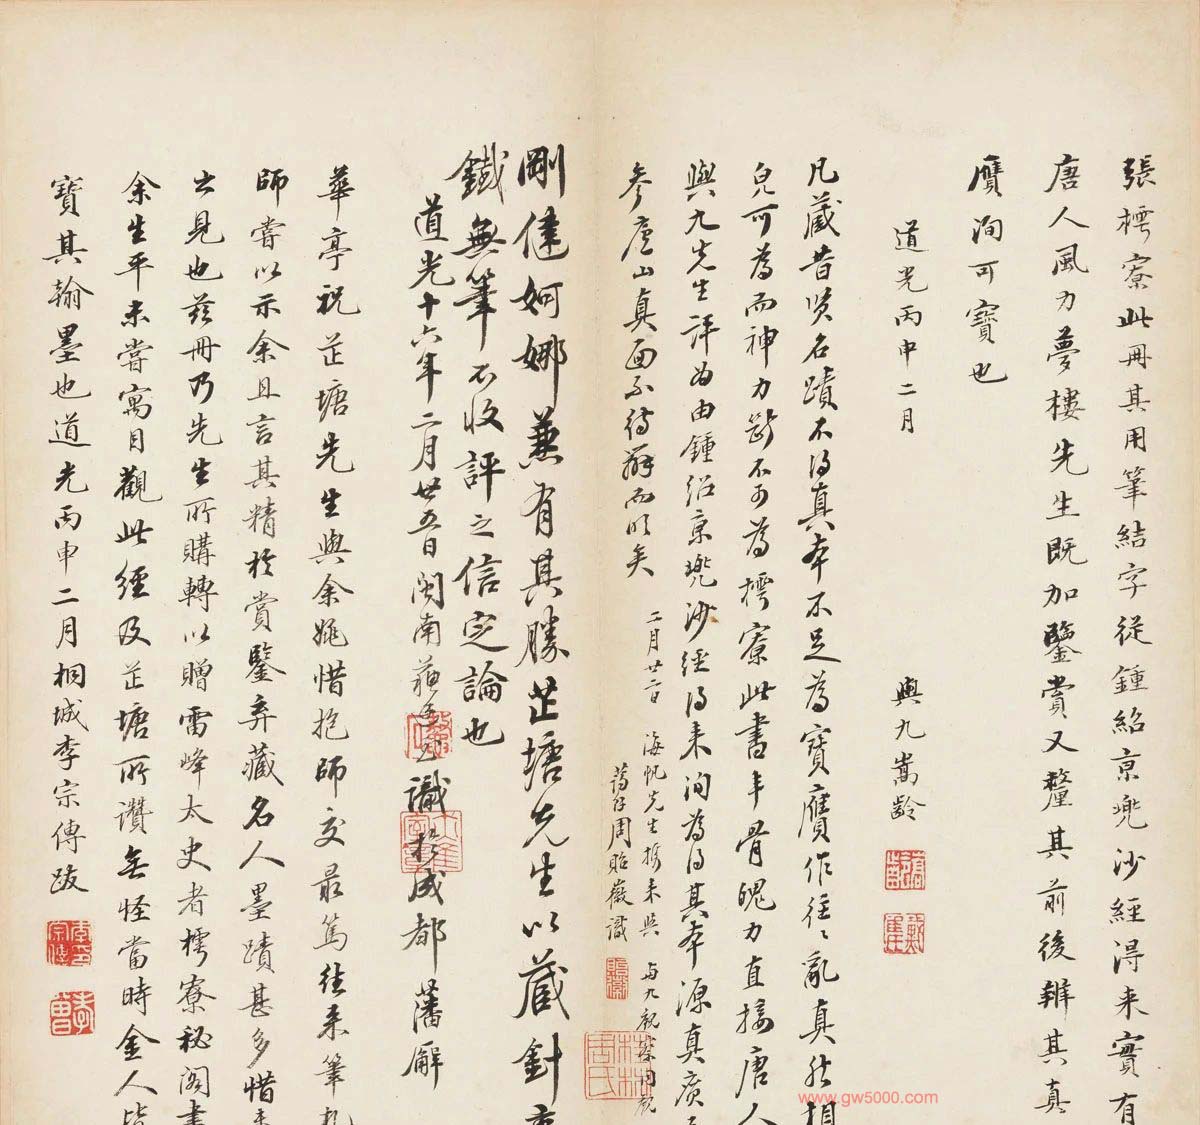 張樗寮此冊其用筆結字從鍾紹京兜沙經得来實有
唐人風力夢樓先生既加鑒賞又釐其前後辨其真
贗洵可寶也
道光丙申二月
與九嵩齡
凡藏昔贤名蹟不得真本不足為寶贗作往往亂真然相
皃可為而神力斷不可為樗寮此書丰骨魄力直接唐人
與九先生評為由鍾紹京兜沙經得来洵為得其本源真贗
参廬山真面不待辭而明矣
二月廿二日 海帆先生携来與 與九觀察同觀
周貽徽識
剛健婀娜兼有其勝芷塘先生以藏針
鐵無筆不收評之信定論也
道光十六年二月廿五日閩南蘇 識於成都藩廨
華亭祝芷塘先生與余姚惜抱師交最篤往来筆札
師嘗以示余且言其精於賞鑒弆藏名人墨蹟甚多惜未
之見也兹冊乃先生所購轉以贈雷峰太史者樗寮秘阁書
余生平未嘗寓目觀此經及芷塘所讚無怪當時金人皆
寶其翰墨也道光丙申二月桐城李宗傳跋
www.gw5000.com